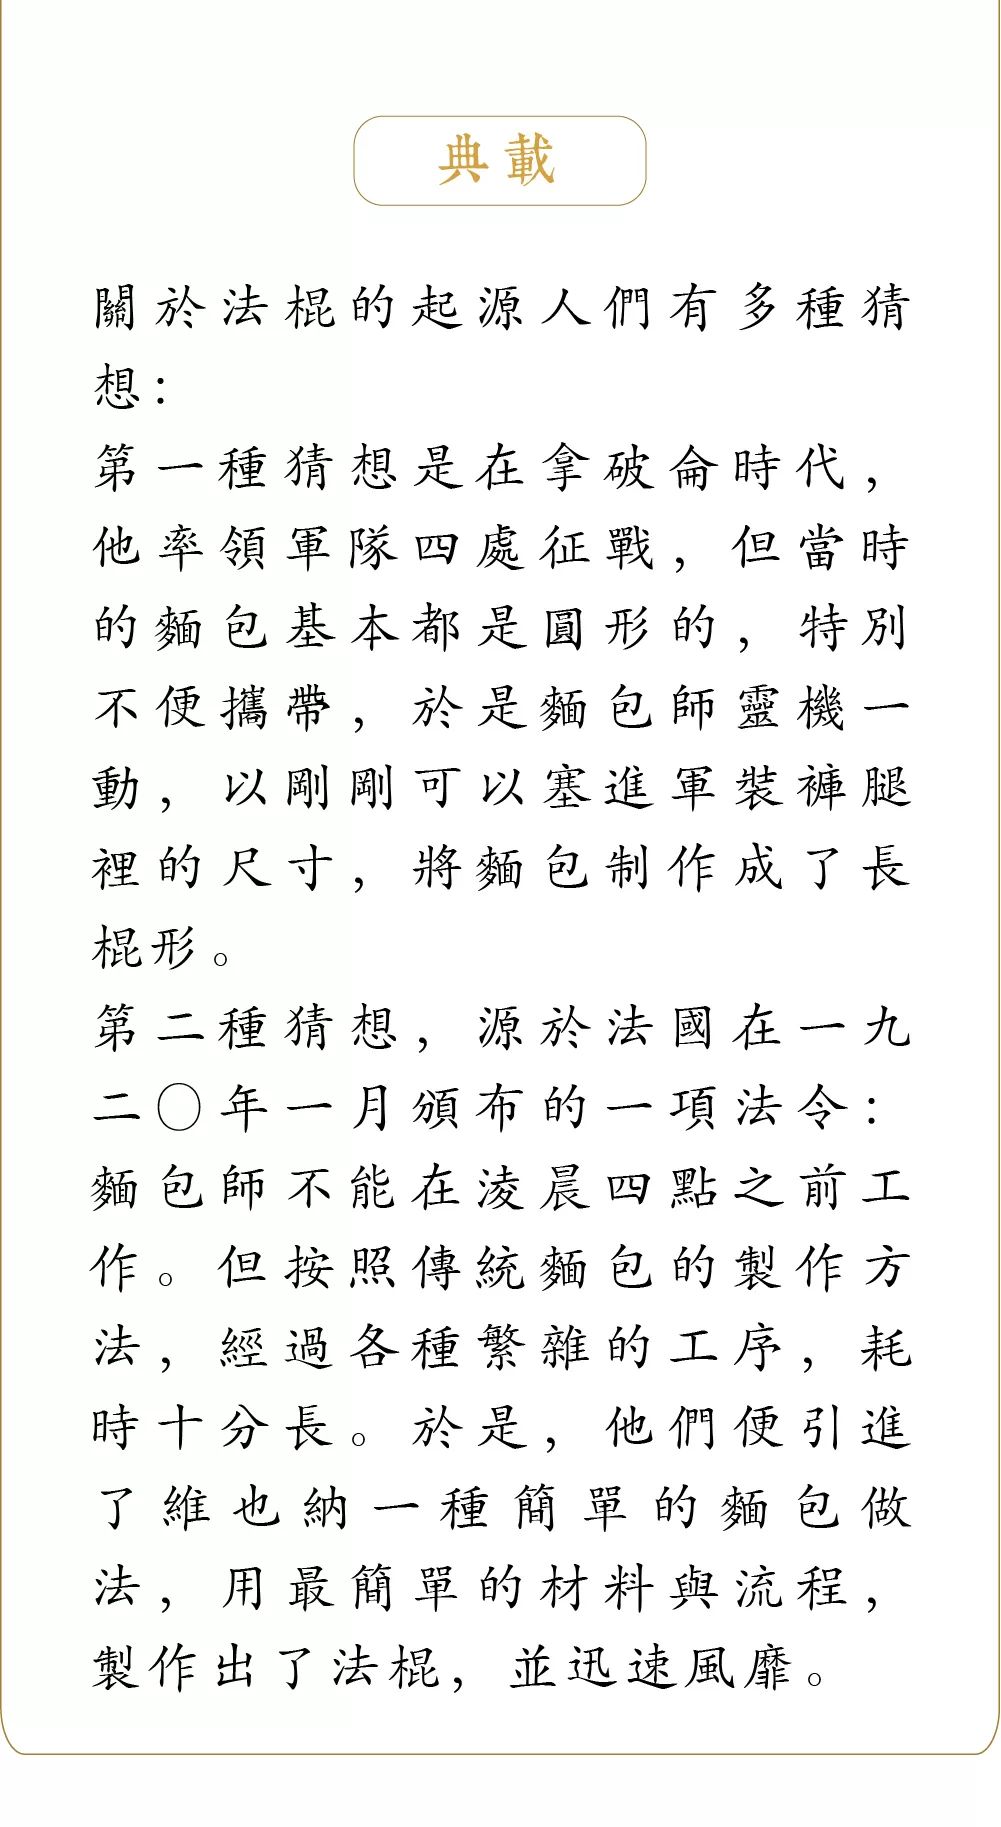 典載
關於法棍的起源人們有多種猜
想：
第一種猜想是在拿破侖時代，
他率領軍隊四處征戰，但當時
的麵包基本都是圓形的，特別
不便攜帶，於是麵包師靈機一
動，以剛剛可以塞進軍裝褲腿
裡的尺寸，將麵包制作成了長
棍形。
第二種猜想，源於法國在一九
二〇年一月頒布的一項法令：
麵包師不能在淩晨四點之前工
作。但按照傳統麵包的製作方
法，經過各種繁雜的工序，耗
時十分長。於是，他們便引進
了維也納一種簡單的麵包做
法，用最簡單的材料與流程，
製作出了法棍，並迅速風靡。